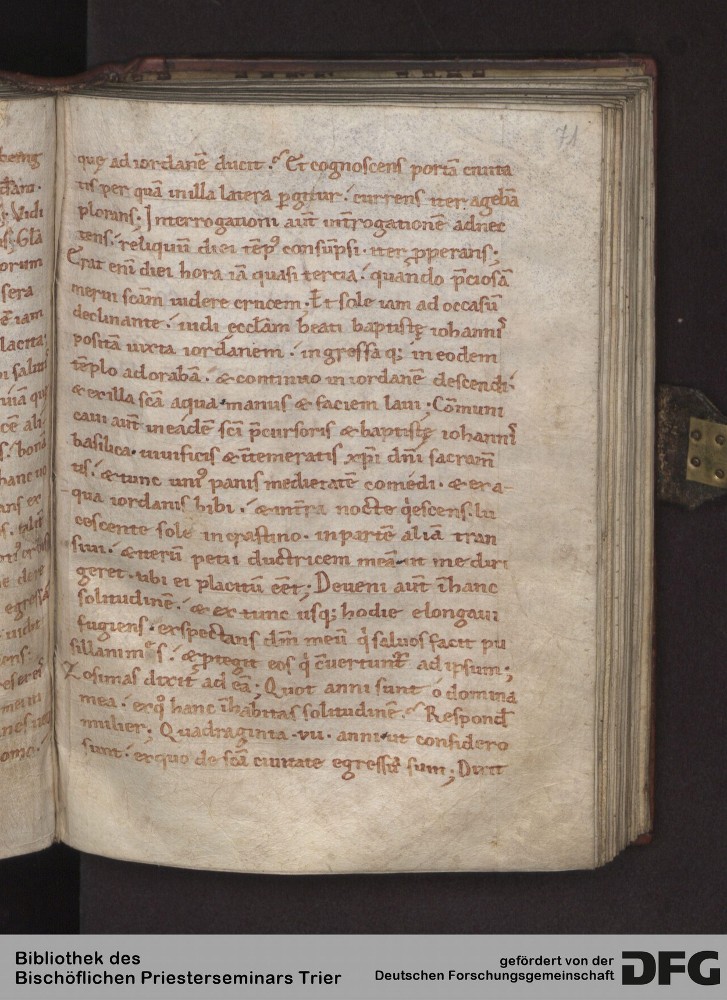 71
quę ad iordanē ducit. Et cognoscens portā ciuita
tis per quā in illa latera pgitur. currens iter agebā
plorans; Interrogationi aūt introgationē adnec
tens. reliquum diei tēp⁹ consūpsi. iter pperans;
Erat eni diei hora iā quasi tercia. quando p̄ciosā
merui scām uidere crucem. Et sole iam ad occasū
declinante. uidi ecclām beati baptistę iohannis
positā iuxta iordanem. ingressaq; in eodem
tēplo adorabā. & continuo in iordanē descendi.
& ex illa scā aqua manus & faciem laui; Cōmuni
caui aūt in eadē sci p̄cursoris & baptistę iohannis
basilica. uiuificis & intemeratis xpi dn̄i sacram̄
tis. & tunc uni⁹ panis medietatē comedi. & ex a-
qua iordanis bibi. & intra nocte q̇escens. lu
cescente sole in crastino. in partē aliā tran
siui. & iterū petii ductricem meā ut me diri
geret. ubi ei placitū eēt; Deueni aūt i hanc
solitudinē. & ex tunc usq; hodie elongaui
fugiens. exspectans dm̄ meū q̇ saluos facit pu
sillanimes. & ptegit eos q̇ cuertunt ad ipsum;
Zosimas dixit ad eā; Quot anni sunt o domina
mea. ex q̊ hanc ihabitas solitudinē. Respond̄
mulier; Quadraginta .vii. anni ut considero
sunt. ex quo de scā ciuitate egressa sum; Dixit
being
Vidi
orum
sera
iam
uiā
bona
hanc
Bibliothek des
Bischöflichen Priesterseminars Trier
gefördert von der
Deutschen Forschungsgemeinschaft
DFG